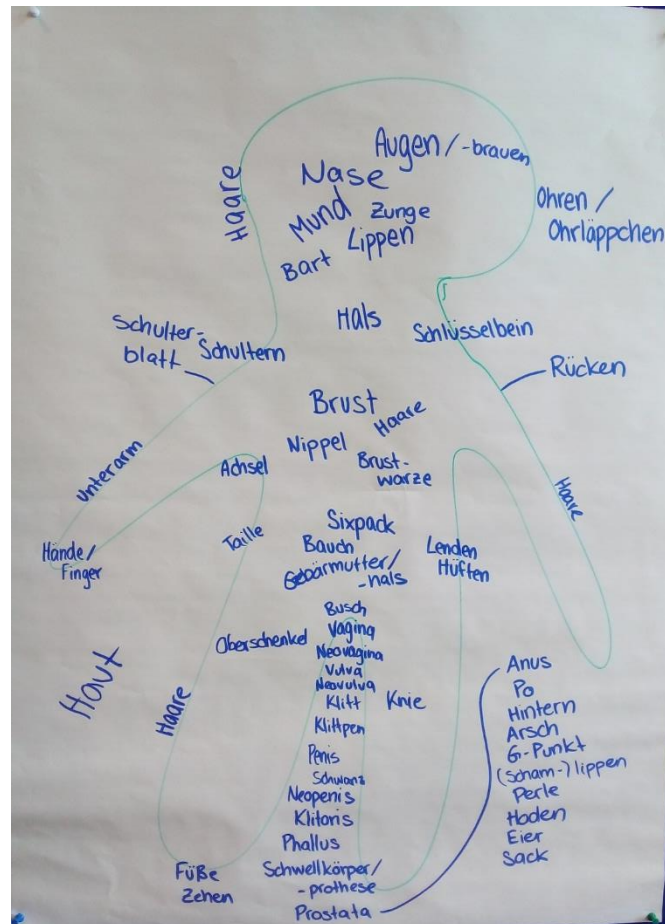 Augen / -brauen
Nase
Haare
Mund Zunge
Lippen
Bart
Ohren /
Ohrläppchen
Hals
Schlüsselbein
Schulter-
blatt
Schultern
Rücken
Brust
Haare
Nippel
Brust-
warze
Achsel
Unterarm
Hände/
Finger
Haare
Taille
Sixpack
Bauch
Gebärmutter/
-hals
Lenden
Hüften
Busch
Vagina
Oberschenkel
Neovagina
Vulva
Neovulva
Klitt
Knie
Klittpen
Penis
Schwanz
Neopenis
Klitoris
Phallus
Schwellkörper/
-prothese
Prostata
Haut
Haare
Füße
Zehen
Anus
Po
Hintern
Arsch
G-Punkt
(Scham-)lippen
Perle
Hoden
Eier
Sack